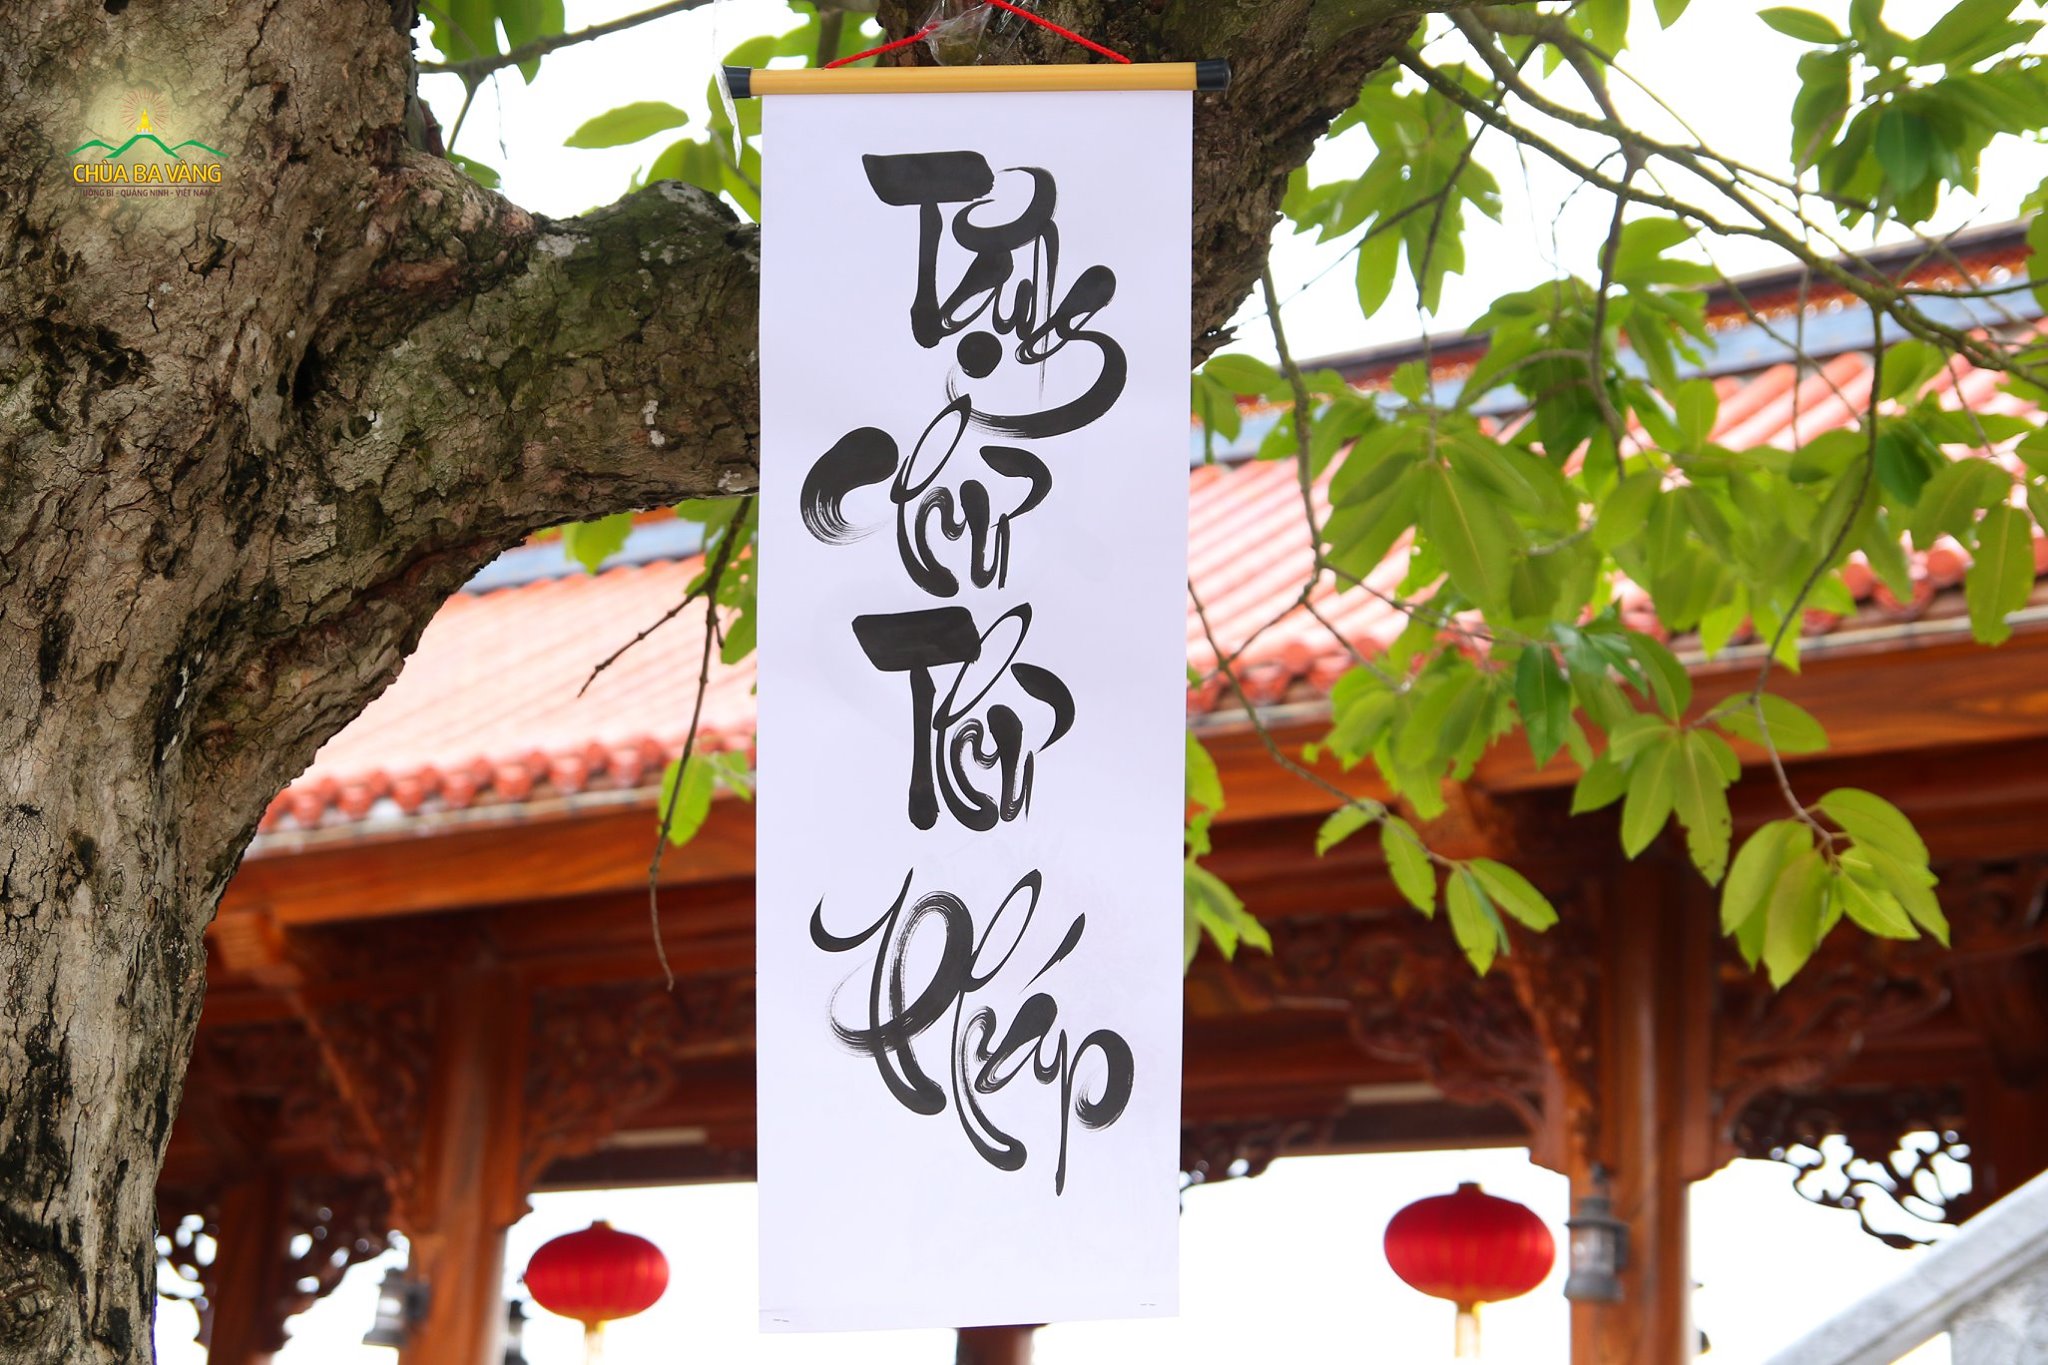 CHÙA BA VÀNG
UÔNG BÍ - QUẢNG NINH - VIỆT NAM
Tặng
chữ
Thư
Pháp